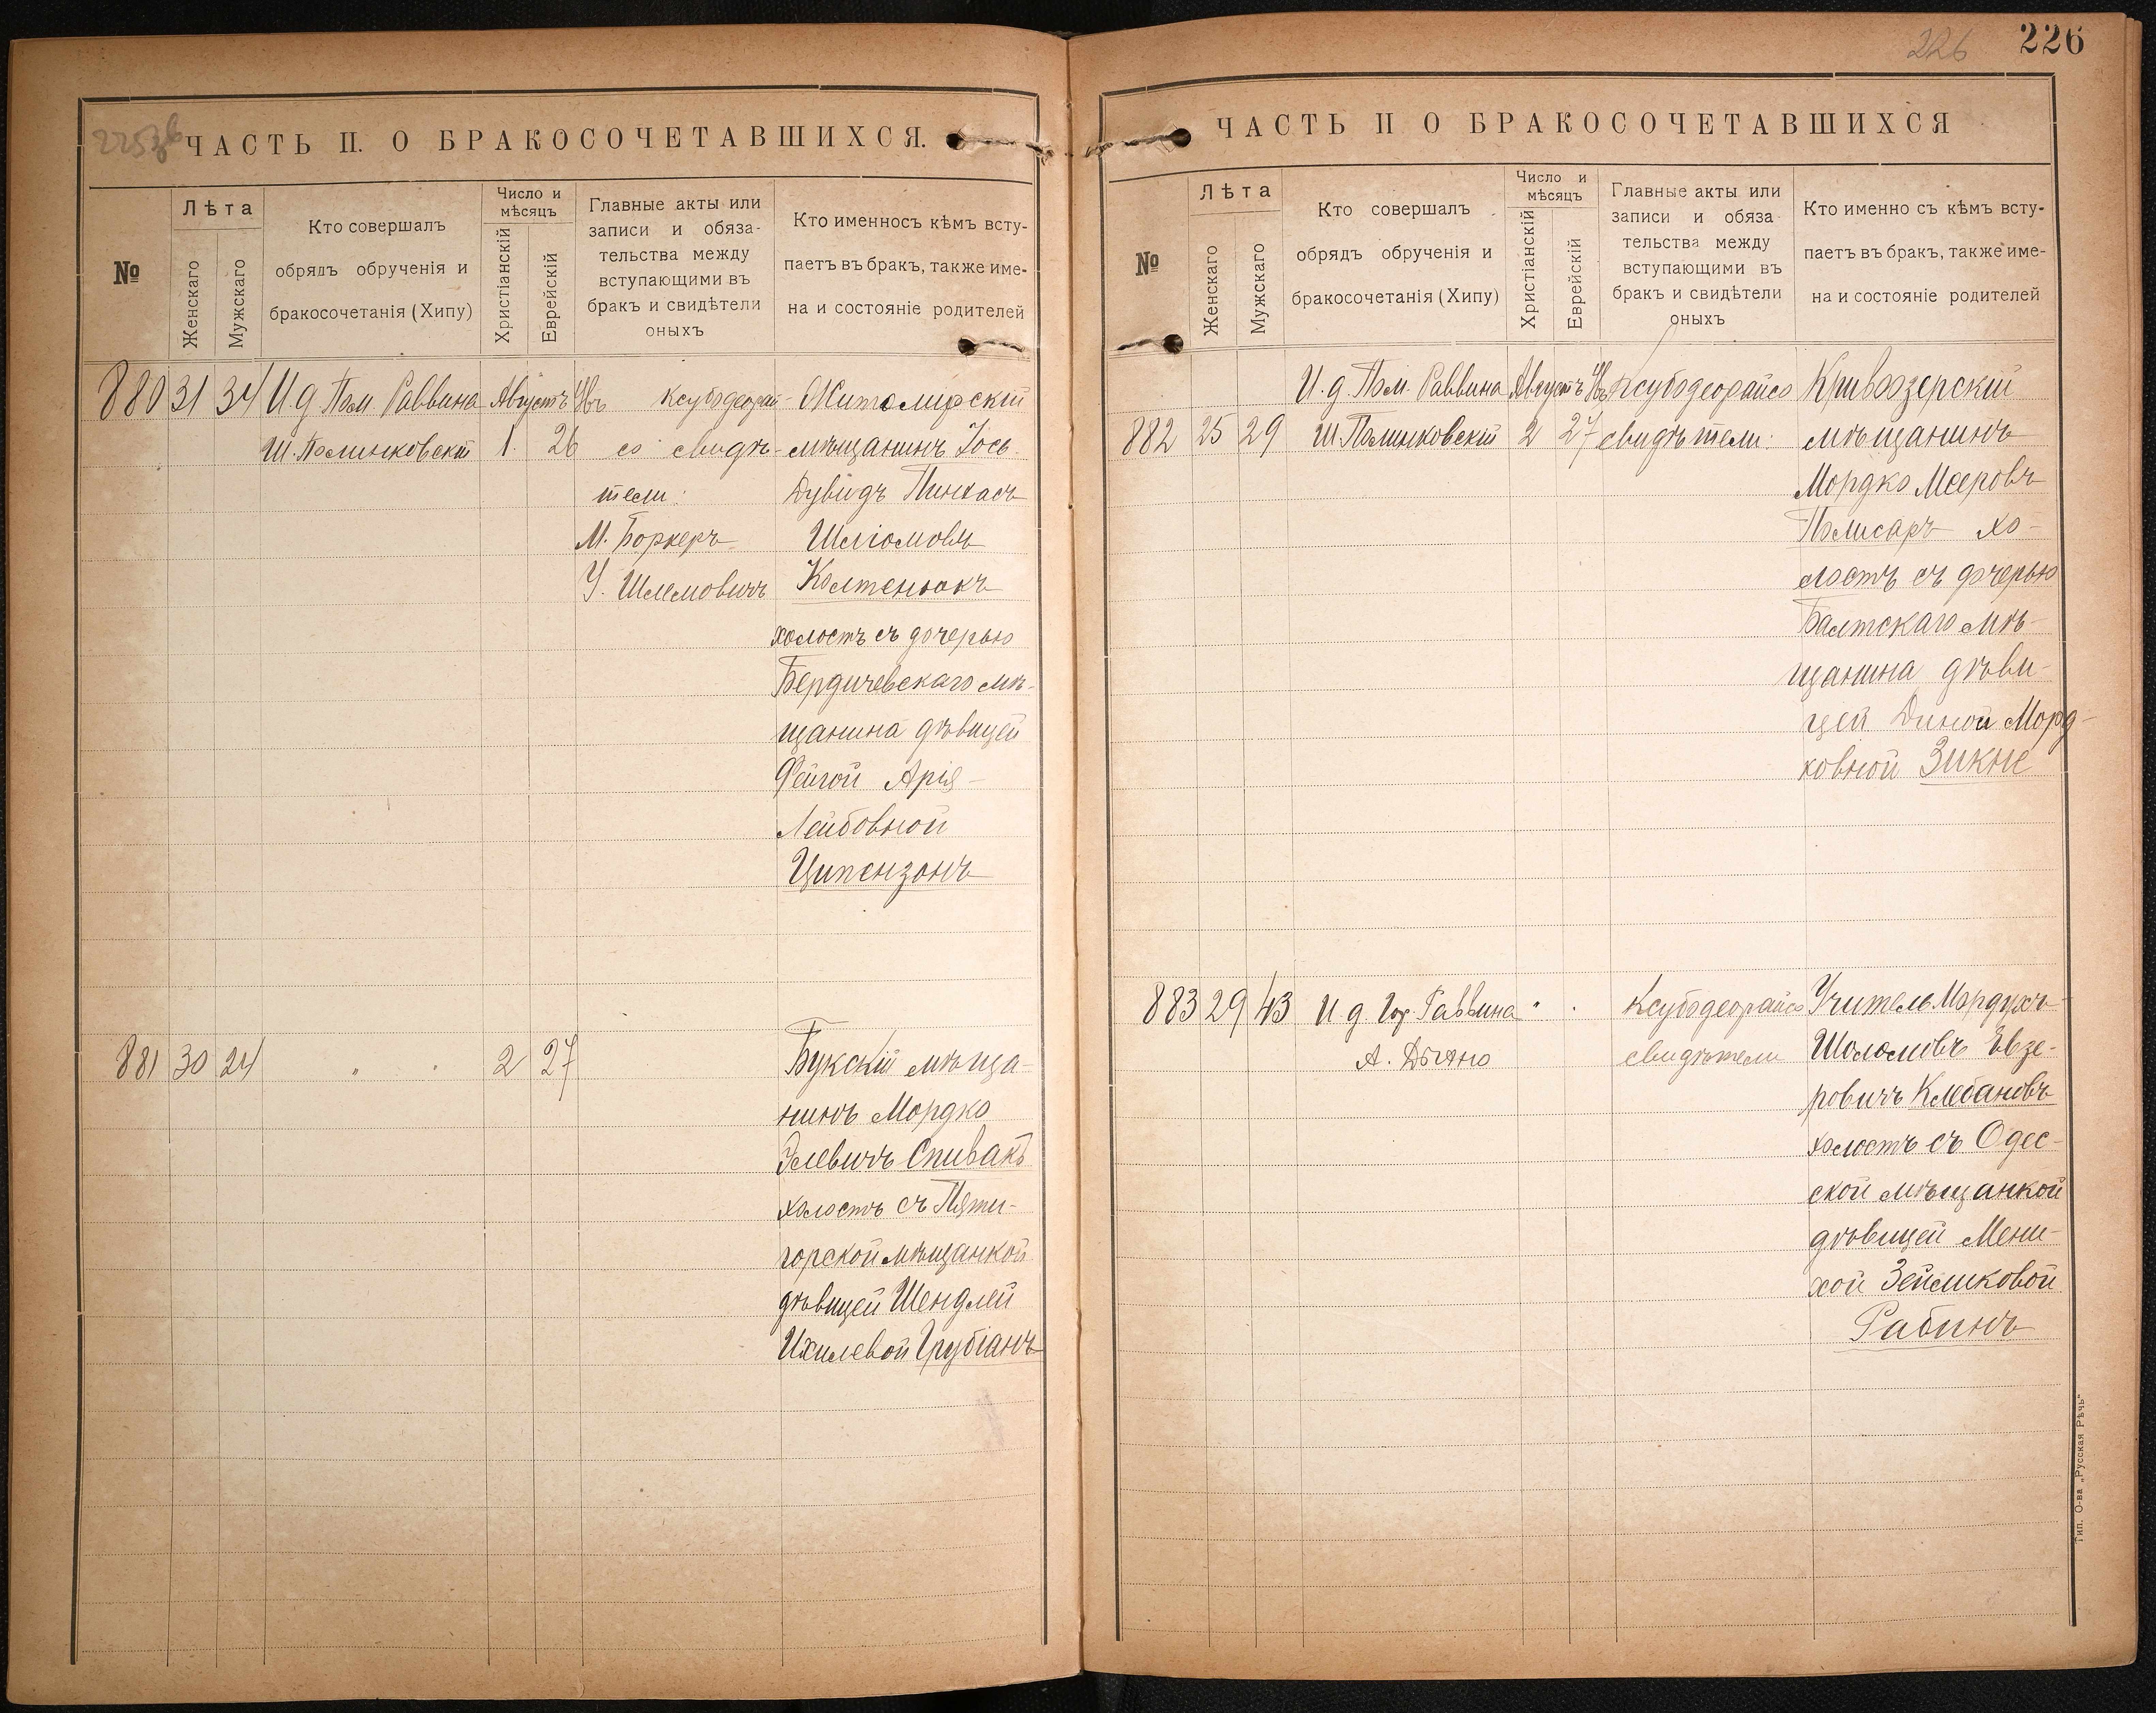 225 зв
ЧАСТЬ II. О БРАКОСОЧЕТАВШИХСЯ.
№
Лѣта
Женскаго
Мужскаго
Кто совершалъ
обрядъ обрученія и
бракосочетанія (Хипу)
Число и
мѣсяцъ
Христіанскій
Еврейскій
Главные акты или
записи и обяза-
тельства между
вступающими въ
бракъ и свидѣтели
оныхъ
Кто именносъ кѣмъ всту-
паетъ въ бракъ, также име-
на и состояніе родителей
880 31 34 И.д Пом Раввина Августъ Увъ ксубодеорай- Житомирскій
Ш. Полинковскій 1 26 со свидѣ- мѣщанинъ Іось
тели: Дувидъ Пинхасъ
М. Боркеръ Шліомовъ
У. Шлемовичъ Колтенюкъ
холостъ съ дочерью
Бердичевскаго мѣ-
щанина дѣвицей
Фейгой Арія-
Лейбовной
Ципензонъ
881 30 24 " " 2 27 Букскій мѣща-
нинъ Мордко
Элевичъ Спивакъ
холостъ съ Пяти-
горской мѣщанкой
дѣвицей Шендлей
Ихилевой Грубіанъ
226
226
ЧАСТЬ II О БРАКОСОЧЕТАВШИХСЯ
№
Лѣта
Женскаго
Мужскаго
Кто совершалъ
обрядъ обрученія и
бракосочетанія (Хипу)
Число и
мѣсяцъ
Христіанскій
Еврейскій
Главные акты или
записи и обяза
тельства между
вступающими въ
бракъ и свидѣтели
оныхъ
Кто именно съ кѣмъ всту-
паетъ въ бракъ, также име-
на и состояніе родителей
И.д. Пом. Раввина Августъ Увъ Ксубодеорайсо Кривоозерскій
882 25 29 Ш. Полинковскій 2 27 свидѣтели: мѣщанинъ
Мордко Мееровъ
Полисаръ хо-
лостъ съ дочерью
Балтскаго мѣ-
щанина дѣви-
цей Диной Морд-
ковной Зикне
883 29 43 И.д. Гор. Раввина " " Ксубодеорайсо Учитель Мордухъ-
А. Дыхно свидѣтели Шоломовъ Евзе-
ровичъ Клебановъ
холостъ съ Одес-
ской мѣщанкой
дѣвицей Мени-
хой Зейликовой
Рабинъ
Тип. О-ва „Русская Рѣчь"